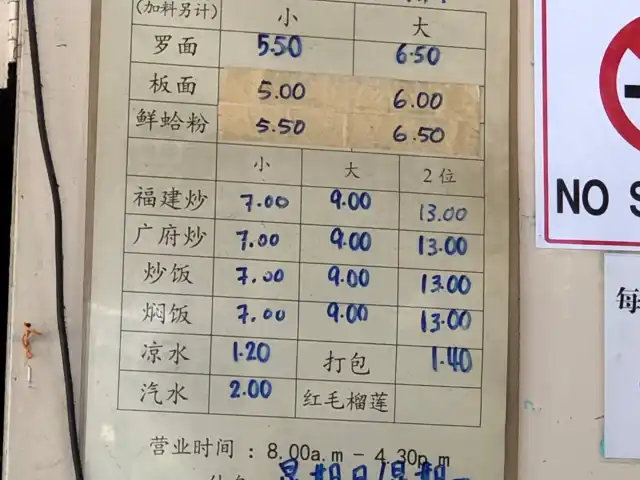 (加料另计) 小 大
罗面 5.50 6.50
板面 5.00 6.00
鲜蛤粉 5.50 6.50
小 大 2位
福建炒 7.00 9.00 13.00
广府炒 7.00 9.00 13.00
炒饭 7.00 9.00 13.00
焖饭 7.00 9.00 13.00
凉水 1.20 打包 1.40
汽水 2.00 红毛榴莲
营业时间 : 8.00a.m – 4.30p.m
星期日/星期一
NO S
每